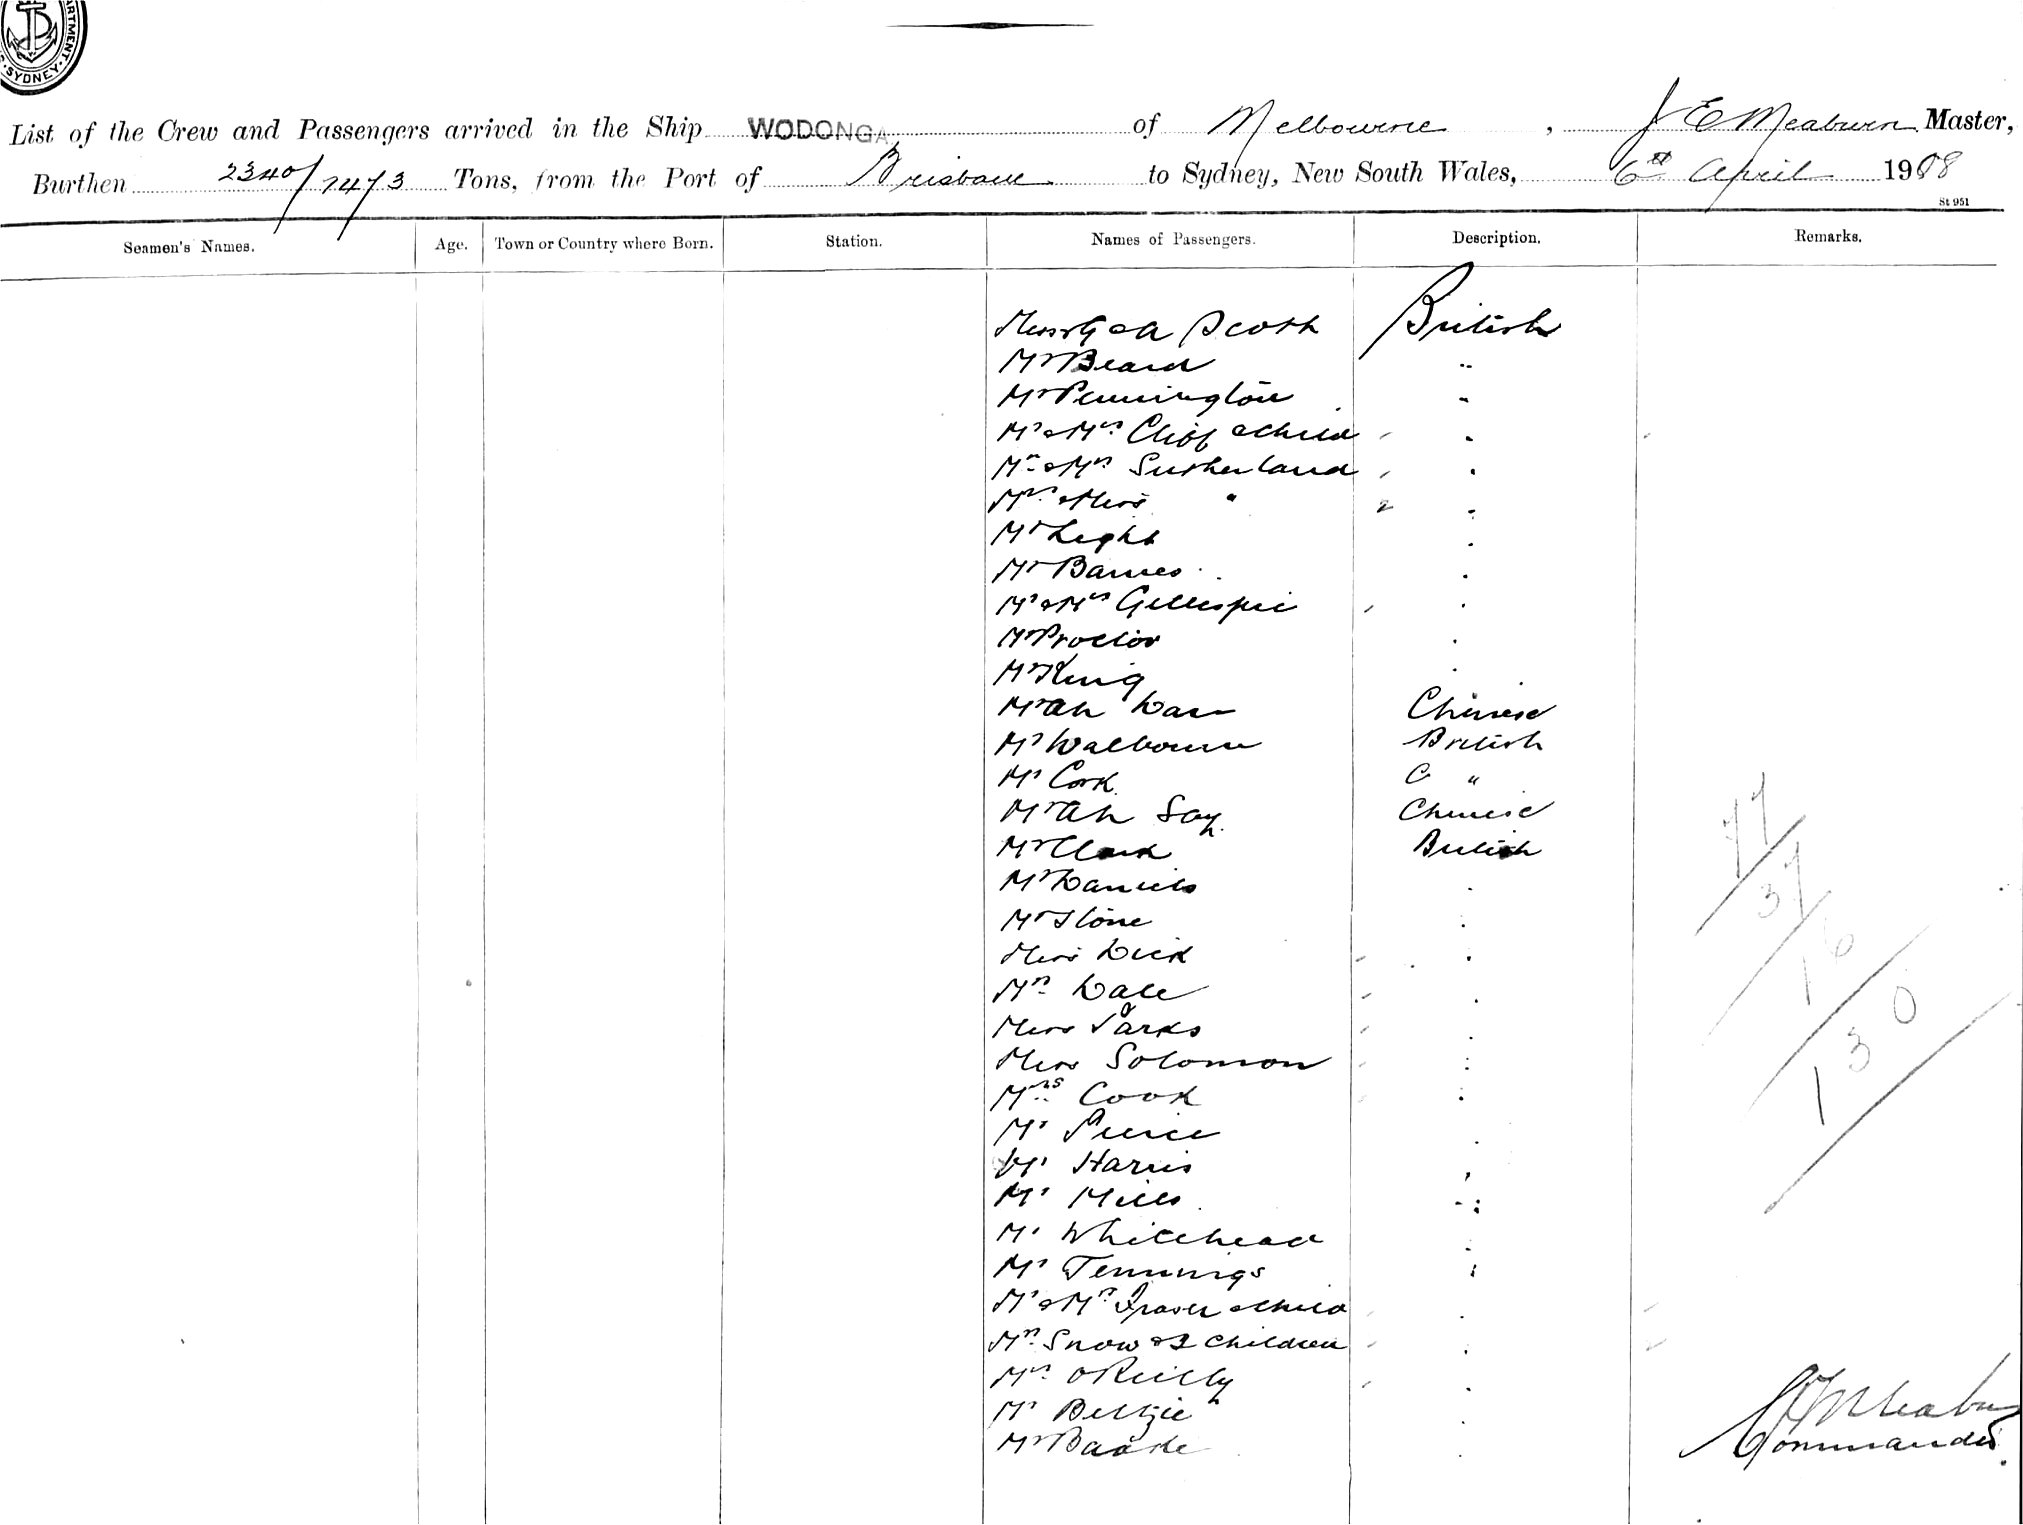 ARTMENT · SYDNEY ·
List of the Crew and Passengers arrived in the Ship WODONGA of Melbourne, J E Meaburn Master,
Burthen 2340/1473 Tons, from the Port of Brisbane to Sydney, New South Wales, 6th April 1908
St 951
Seamen's Names. Age. Town or Country where Born. Station. Names of Passengers. Description. Remarks.
G & A Scott British
Mr Beard "
Mr Pennington "
Mr & Mrs Cliff & child "
Mr & Mrs Sutherland "
Mrs & Miss " 2 "
Mr Light "
Mr Barnes "
Mr & Mrs Gillespie "
Mr Proctor "
Mr King "
Mr Ah Chinese
Mr Walbourn British
Mr Cork C "
Mr Ah Say Chinese
Mr Clark British
Mr Daniels "
Mr Stone "
Miss Dick "
Mrs Dale "
Miss Parks "
Miss Solomon "
Mrs Cook "
Mr Peirce "
Mr Harris "
Mr Mills "
Mr Whitehead "
Mr Jennings "
Mr & Mrs Fraser & child "
Mrs Snow & 2 children "
Mrs O'Reilly "
Mr "
Mr Baake "
77
37
16
130
J E Meaburn
Commander